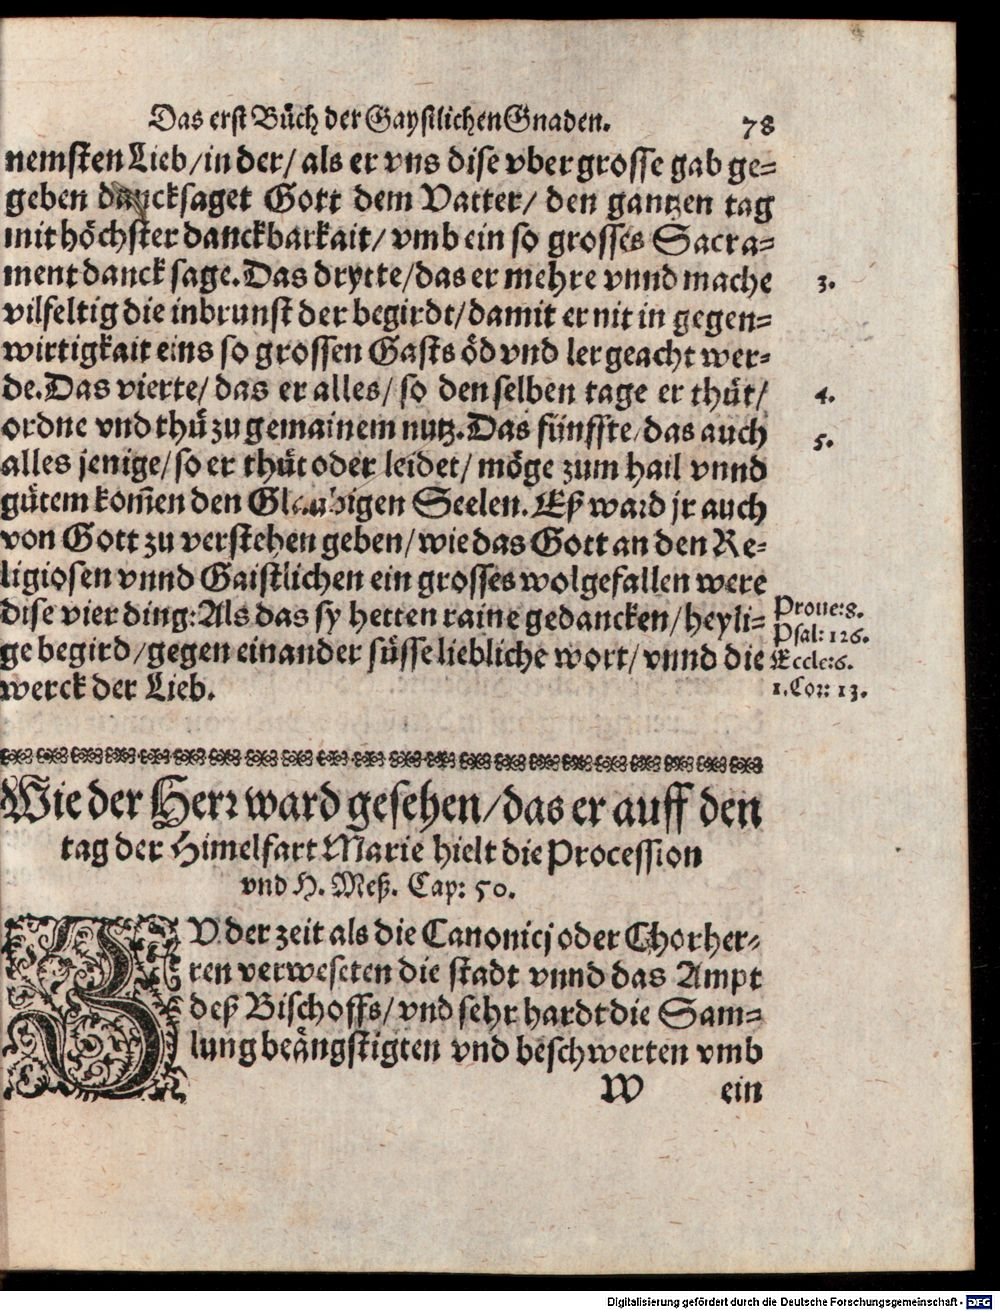 Das erst Bůch der Gaystlichen Gnaden. 78
nemsten Lieb/ in der/ als er vns dise vber grosse gab ge-
geben dancksaget Gott dem Vatter/ den gantzen tag
mit höchster danckbarkait/ vmb ein so grosses Sacra-
ment danck sage. Das drytte/ das er mehre vnnd mache 3.
vilfeltig die inbrunst der begirdt/ damit er nit in gegen-
wirtigkait eins so grossen Gasts öd vnd ler geacht wer-
de. Das vierte/ das er alles/ so den selben tage er thůt/ 4.
ordne vnd thů zu gemainem nutz. Das fünffte/ das auch 5.
alles jenige/ so er thůt oder leidet/ möge zum hail vnnd
gůtem kom̃en den Glaubigen Seelen. Eß ward jr auch
von Gott zu verstehen geben/ wie das Gott an den Re-
ligiosen vnnd Gaistlichen ein grosses wolgefallen were
dise vier ding: Als das sy hetten raine gedancken/ heyli- Proue: 8.
Psal: 126.
ge begird/ gegen einander süsse liebliche wort/ vnnd die Eccle: 6.
werck der Lieb. 1. Cor: 13.
Wie der Herr ward gesehen/ das er auff den
tag der Himelfart Marie hielt die Procession
vnd H. Meß. Cap: 50.
ZV der zeit als die Canonicj oder Chorher-
ren verweseten die stadt vnnd das Ampt
deß Bischoffs/ vnd sehr hardt die Sam-
lung beängstigten vnd beschwerten vmb
W ein
Digitalisierung gefördert durch die Deutsche Forschungsgemeinschaft - DFG